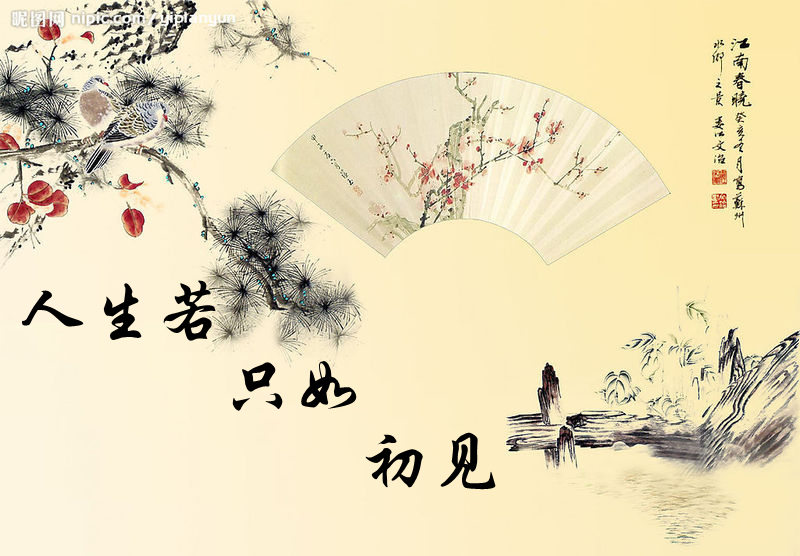 昵图网 nipic.com/yiplanyun
江南春晓 癸亥年月写苏州
水乡之景 娄江文治
人生若
只如
初见